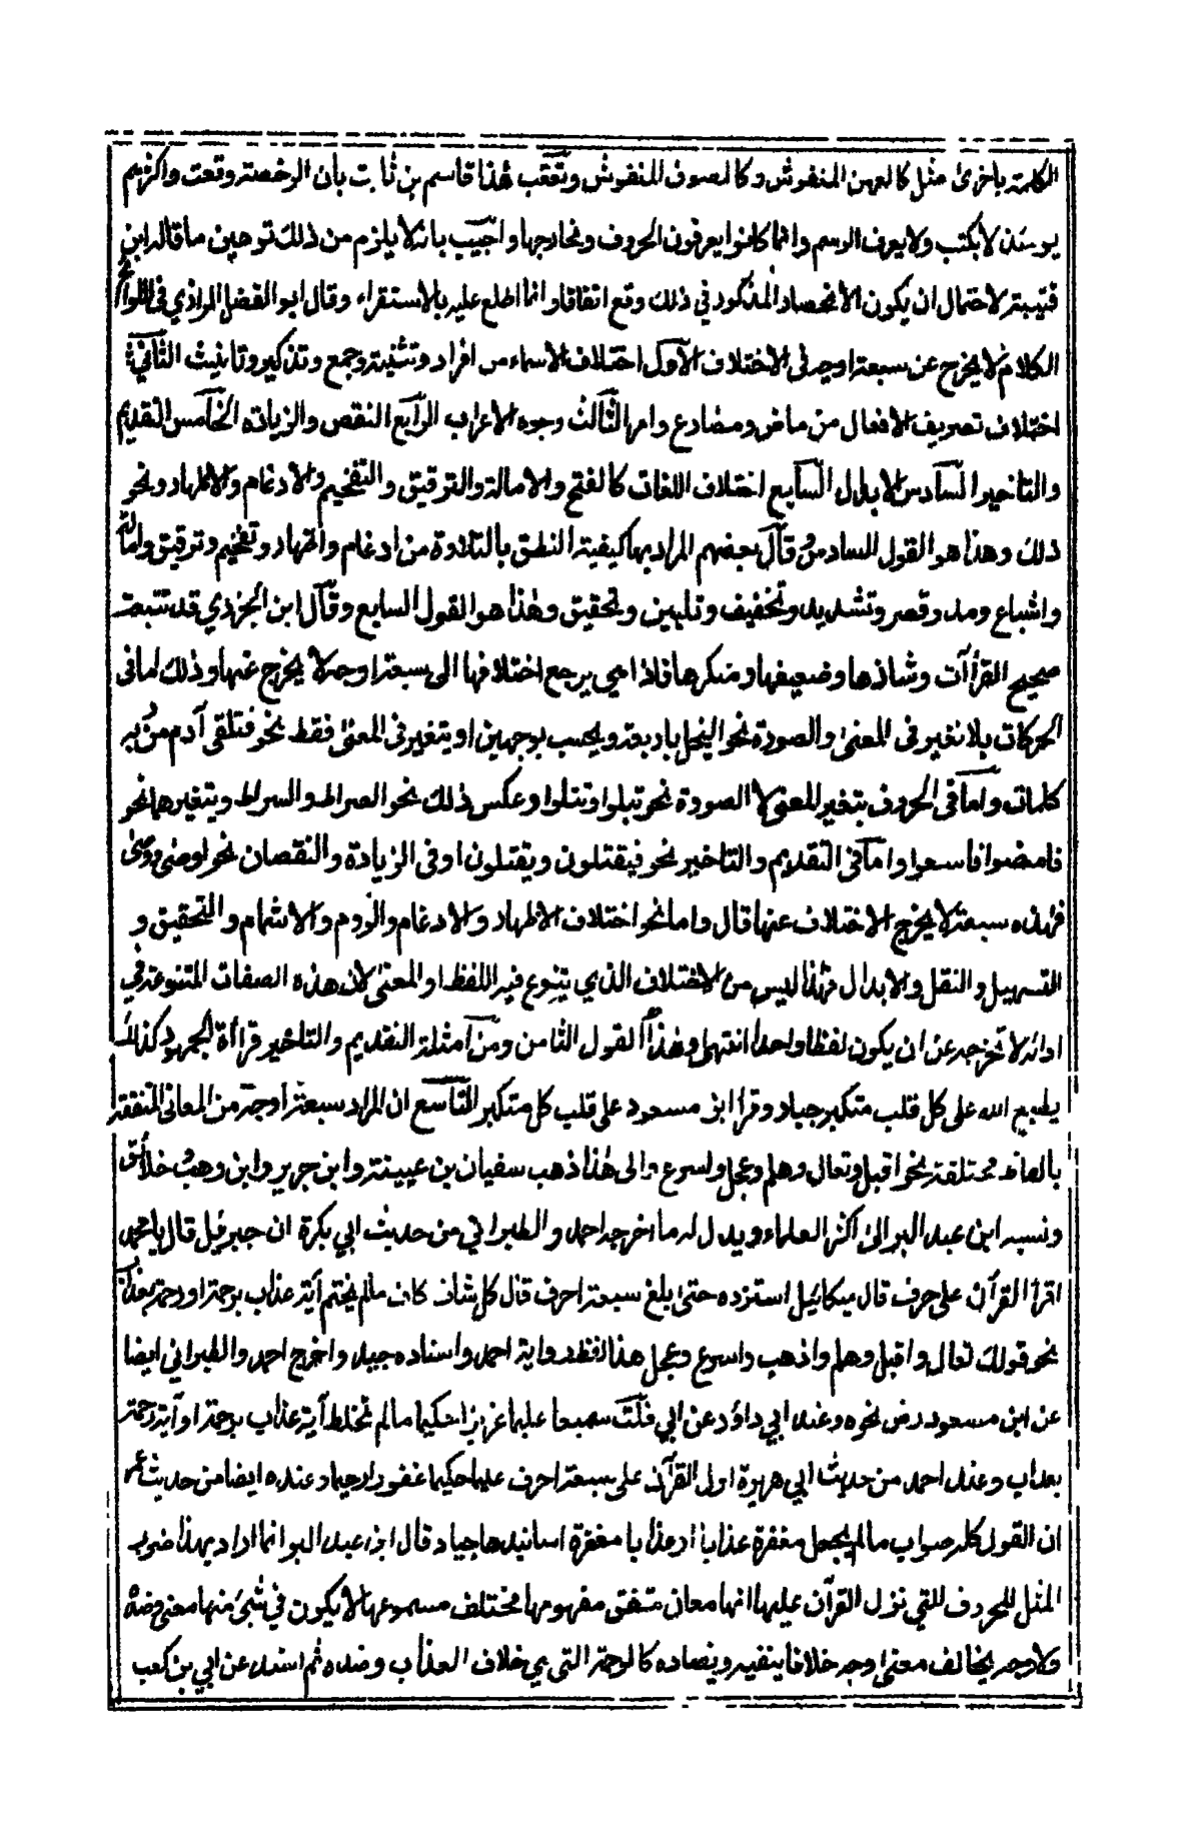 الكلمة باخرى مثل كالعهن المنفوش وكالصوف المنفوش وتعقب هذا قاسم بن ثابت بأن الرخصة وقعت واكثرهم
يومئذ لا يكتب ولا يعرف الرسم وانما كانوا يعرفون الحروف ومخارجها واجيب بانه لا يلزم من ذلك توهين ما قاله ابن
قتيبة لاحتمال ان يكون الانحصار المذكور في ذلك وقع اتفاقا وانما اطلع عليه بالاستقراء وقال ابو الفضل الرازي في اللوائح
الكلام لا يخرج عن سبعة اوجه في الاختلاف الاول اختلاف الاسماء من افراد وتثنية وجمع وتذكير وتانيث الثاني
اختلاف تصريف الافعال من ماض ومضارع وامر الثالث وجوه الاعراب الرابع النقص والزيادة الخامس التقديم
والتاخير السادس الابدال السابع اختلاف اللغات كالفتح والامالة والترقيق والتفخيم والادغام والاظهار ونحو
ذلك وهذا هو القول السادس وقال بعضهم المراد بها كيفية النطق بالتلاوة من ادغام واظهار وتفخيم وترقيق وامالة
واشباع ومد وقصر وتشديد وتخفيف وتليين وتحقيق وهذا هو القول السابع وقال ابن الجزري قد تتبعت
صحيح القرأآت وشاذها وضعيفها ومنكرها فاذا هي يرجع اختلافها الى سبعة اوجه لا يخرج عنها وذلك اما فى
الحركات بلا تغير فى المعنى والصورة نحو البخل باربعة ويحسب بوجهين او بتغير فى المعنى فقط نحو فتلقى آدم من ربه
كلمات واما في الحروف بتغير المعنى لا الصورة نحو تبلوا وتتلوا وعكس ذلك نحو الصراط والسراط وبتغيرهما نحو
فامضوا فاسعوا واما فى التقديم والتاخير نحو فيقتلون ويقتلون او فى الزيادة والنقصان نحو اوصى ووصى
فهذه سبعة لا يخرج الاختلاف عنها قال واما نحو اختلاف الاظهار والادغام والروم والاشمام والتحقيق و
التسهيل والنقل والابدال فهذا ليس من الاختلاف الذي يتنوع فيه اللفظ او المعنى لان هذه الصفات المتنوعة في
ادائه لا تخرجه عن ان يكون لفظا واحدا انتهى وهذا القول الثامن ومن امثلة التقديم والتاخير قرأة الجمهور كذلك
يطبع الله على كل قلب متكبر جبار وقرأ ابن مسعود على قلب كل متكبر التاسع ان المراد سبعة اوجه من المعانى المتفقة
بالفاظ مختلفة نحو اقبل وتعال وهلم وعجل واسرع والى هذا ذهب سفيان بن عيينة وابن جرير وابن وهب وخلائق
ونسبه ابن عبد البر الى اكثر العلماء ويدل له ما اخرجه احمد والطبراني من حديث ابي بكرة ان جبرئيل قال يا محمد
اقرأ القرآن على حرف قال ميكائيل استزده حتى بلغ سبعة احرف قال كل شاف كاف مالم يختم آية عذاب برحمة او رحمة بعذاب
نحو قولك تعال واقبل وهلم واذهب واسرع وعجل هذا لفظ رواية احمد واسناده جيد واخرج احمد والطبراني ايضا
عن ابن مسعود رض نحوه وعند ابي داؤد عن ابي قلت سميعا عليما عزيزا حكيما مالم تخلط آية عذاب برحمة او آية رحمة
بعذاب وعند احمد من حديث ابي هريرة انزل القرآن على سبعة احرف عليما حكيما غفورا رحيما وعنده ايضا من حديث عمر
ان القول كله صواب مالم يجعل مغفرة عذابا او عذابا مغفرة اسانيدها جياد قال ابن عبد البر انما اراد بهذا ضرب
المثل للحروف التي نزل القرآن عليها انها معان متفق مفهومها مختلف مسموعها لا يكون في شئ منها معنى وضده
ولا وجه يخالف معنى وجه خلافا ينفيه ويضاده كالرحمة التي هي خلاف العذاب وضده ثم اسند عن ابي بن كعب